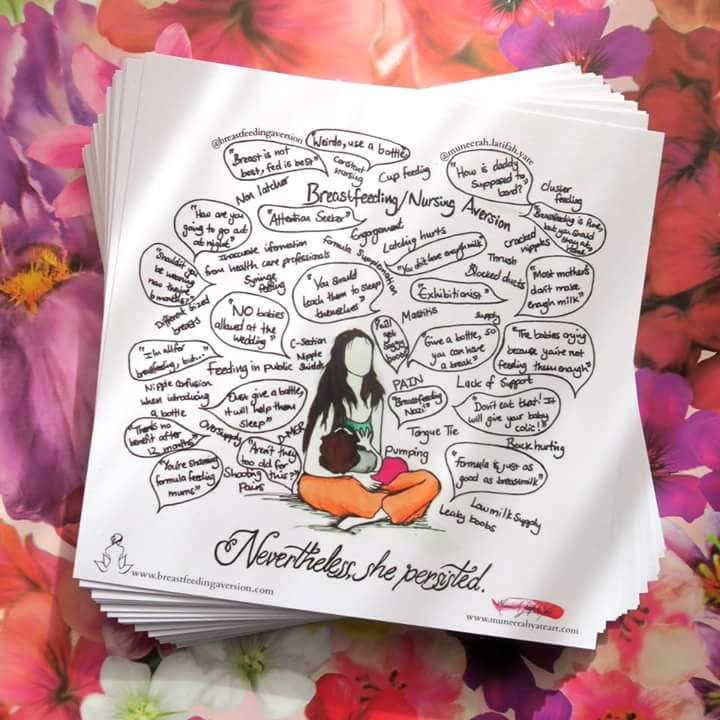 @breastfeedingaversion
"Weirdo, use a bottle"
@muneerah.latifah.yate
"Breast is not
best, fed is best"
Constant
nursing
Cup feeding
"How is daddy
supposed to
bond?"
Cluster
feeding
Non latcher
Breastfeeding/Nursing Aversion
"How are you
going to go out
at night"
"Attention Seeker"
Engorgement
Latching hurts
Cracked
nipples
"Breastfeeding is fine,
but you should
stay at
home"
Inaccurate information
from health care professionals
Formula Supplementation
"You don't have enough milk"
Thrush
Blocked ducts
"Shouldn't you
be weaning
now they're
6 months?"
Syringe
feeding
"You should
teach them to sleep
themselves"
"Exhibitionist"
"Most mothers
don't make
enough milk"
Different sized
breasts
"NO babies
allowed at the
wedding"
Mastitis
Supply
"Give a bottle, so
you can have
a break"
"The babies crying
because you're not
feeding them enough"
"I'm all for
breastfeeding, but..."
Feeding in public
C-Section
Nipple
Shields
PAIN
Lack of Support
Nipple confusion
when introducing
a bottle
"Just give a bottle,
it will help them
sleep"
"Breastfeeding
Nazi"
"Don't eat that! It
will give your baby
colic!"
"There's no
benefit after
12 months"
Oversupply
D-MER
Tongue Tie
Back hurting
"You're shaming
formula feeding
mums"
"Aren't they
too old for
this?"
Shooting
Pains
Pumping
"Formula is just as
good as breastmilk"
Low milk supply
Leaky boobs
Nevertheless, she persisted.
www.breastfeedingaversion.com
www.muneerahyateart.com